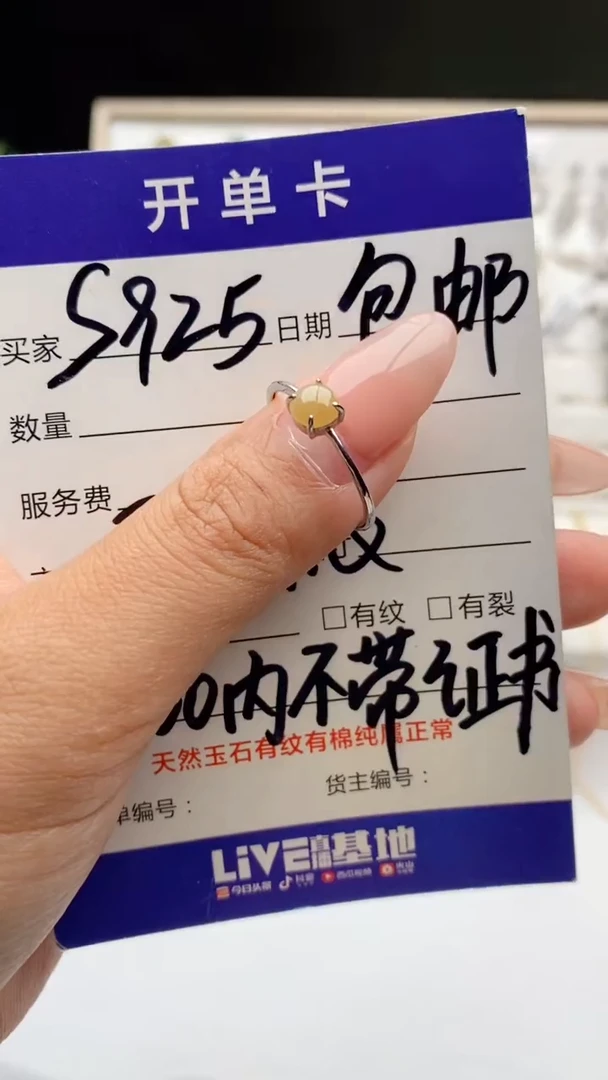 开单卡
买家 S925 日期 包邮
数量
服务费
□有纹 □有裂
00内不带证书
天然玉石有纹有棉纯属正常
单编号： 货主编号：
LiVE直播基地
今日头条 抖音 西瓜视频 火山